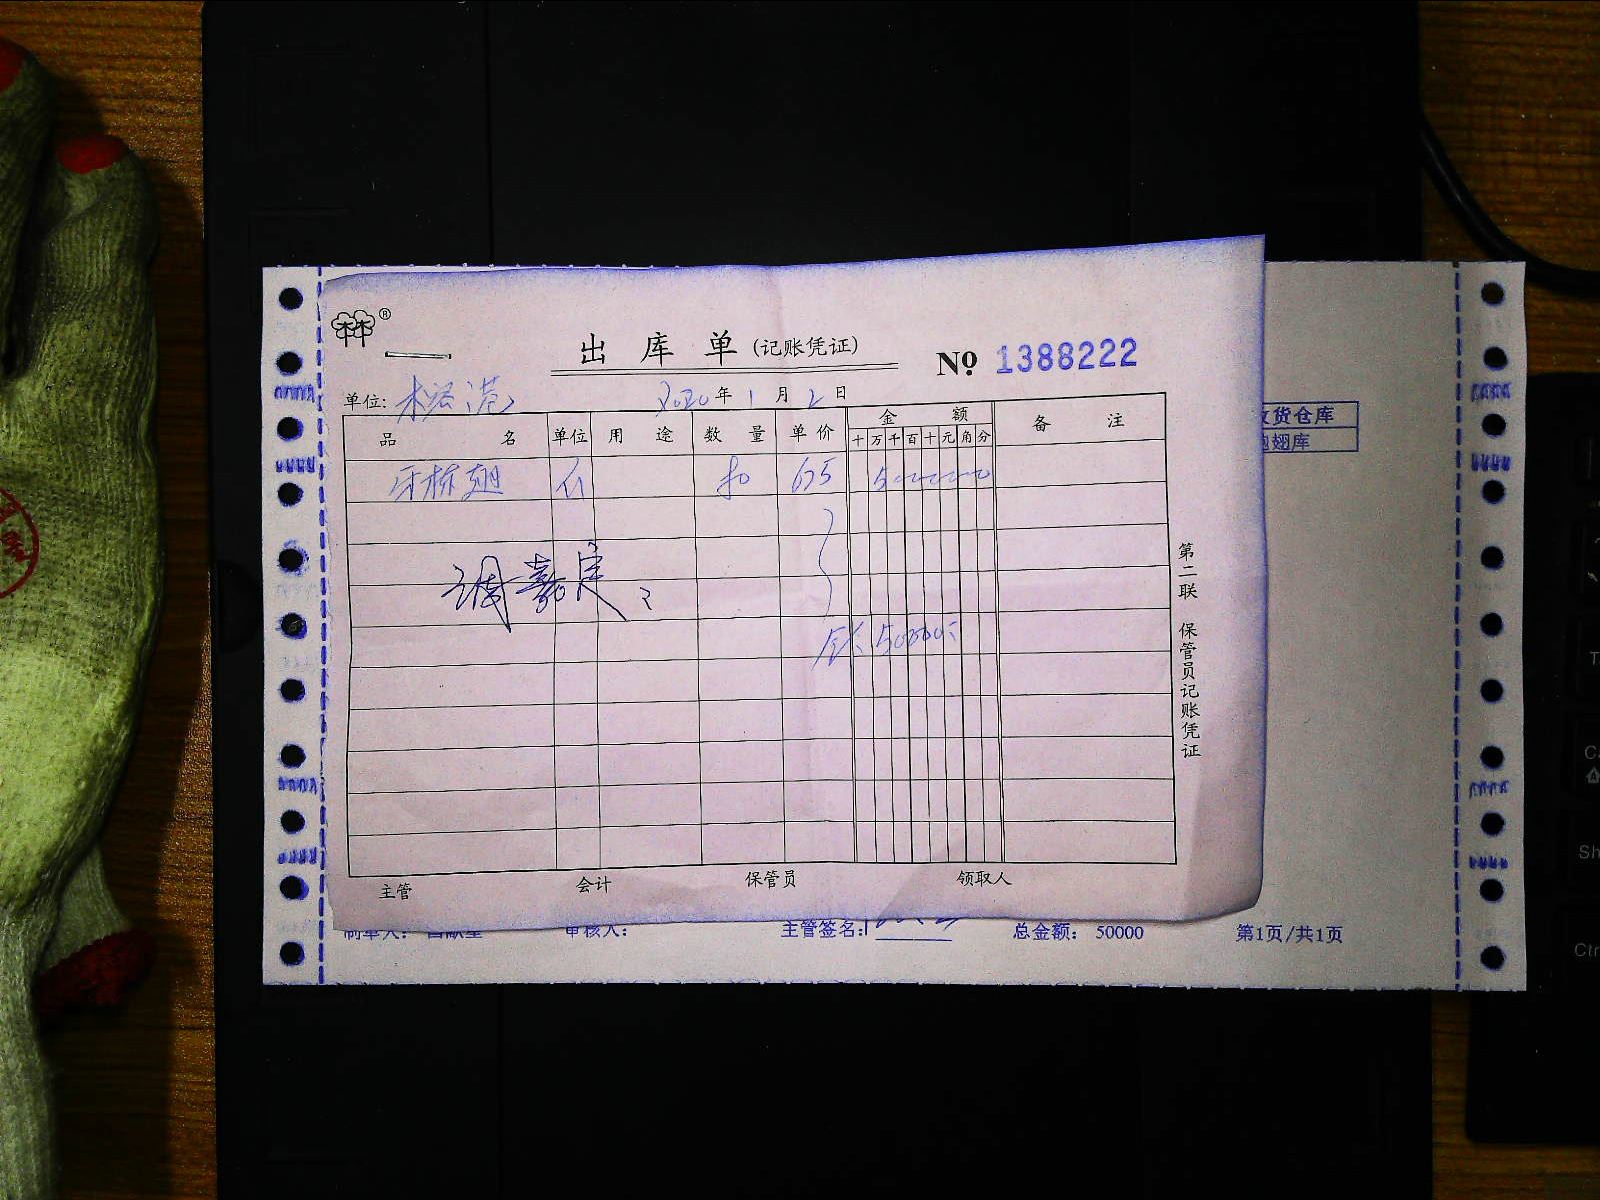 林林®
出库单(记账凭证) № 1388222
单位: 2020年1月2日
收货仓库
鲍翅库
品名 单位 用途 数量 单价 金额 备注
十万千百十元角分
牙栋翅 斤 675
调嘉定
50000
第二联 保管员记账凭证
主管 会计 保管员 领取人
制单人: 审核人: 主管签名: 总金额: 50000 第1页/共1页